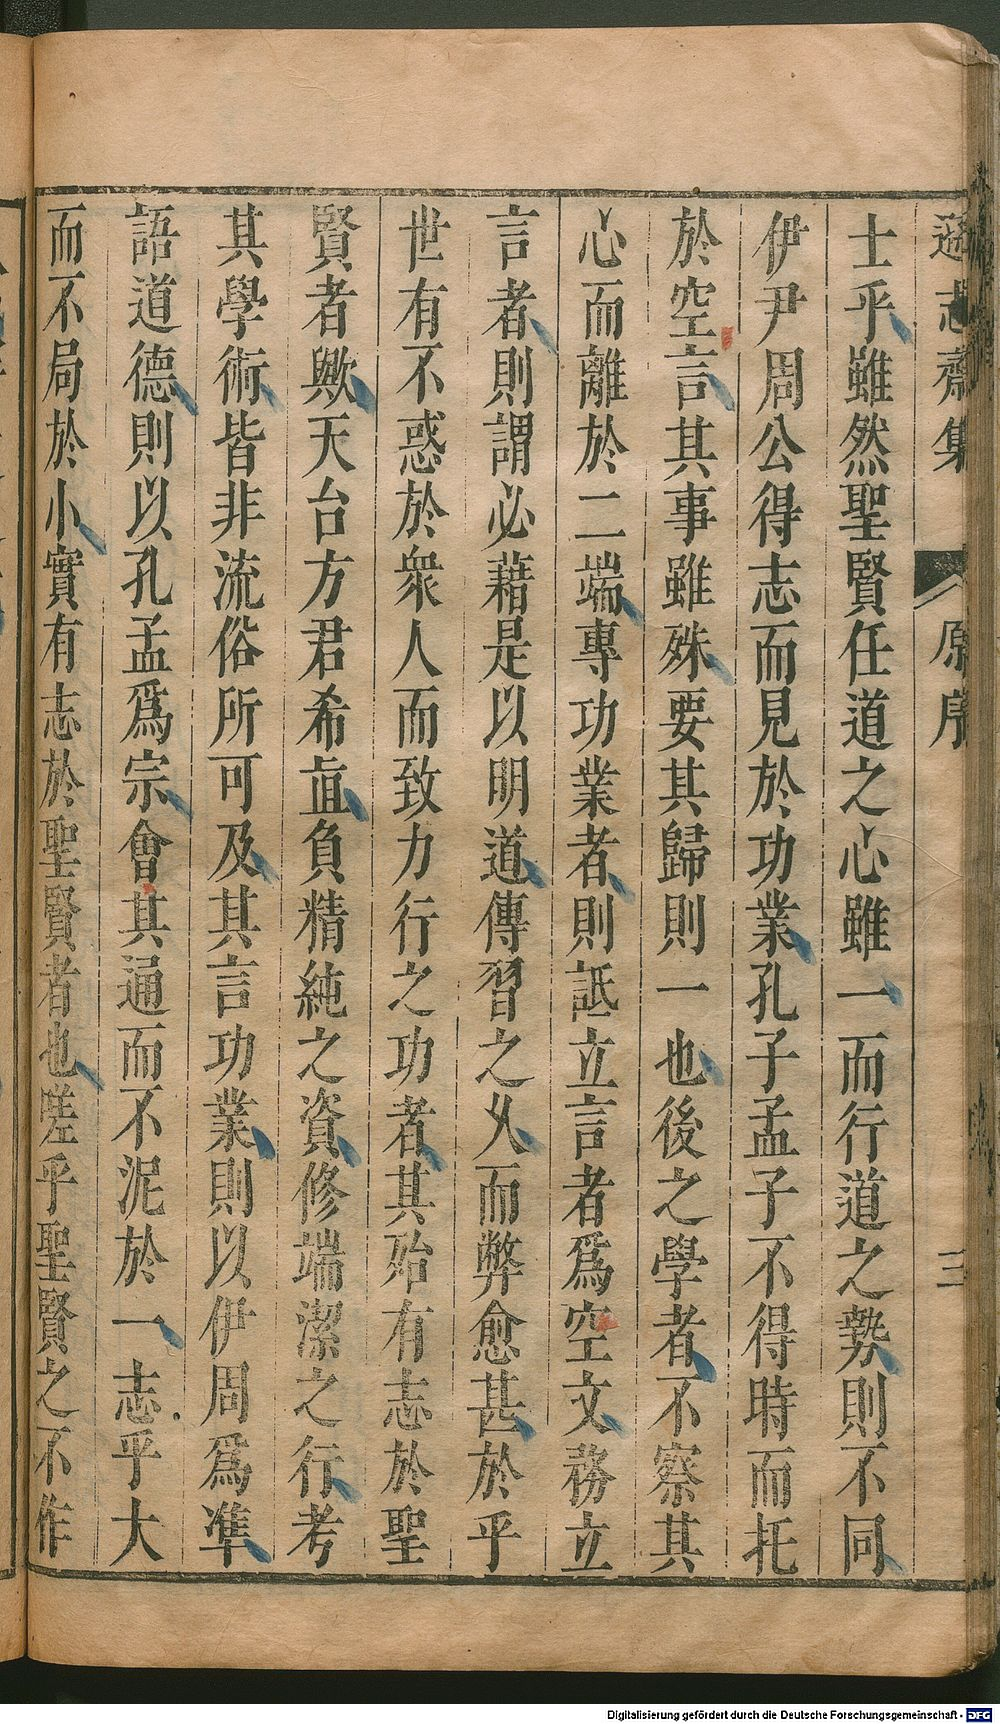 遜志齋集 原序 三
士乎雖然聖賢任道之心雖一而行道之勢則不同
伊尹周公得志而見於功業孔子孟子不得時而托
於空言其事雖殊要其歸則一也後之學者不察其
心而離於二端專功業者則詆立言者爲空文務立
言者則謂必藉是以明道傳習之乆而弊愈甚於乎
世有不惑於衆人而致力行之功者其殆有志於聖
賢者歟天台方君希直負精純之資修端潔之行考
其學術皆非流俗所可及其言功業則以伊周爲凖
語道德則以孔孟爲宗會其通而不泥於一志乎大
而不局於小實有志於聖賢者也嗟乎聖賢之不作
Digitalisierung gefördert durch die Deutsche Forschungsgemeinschaft - DFG